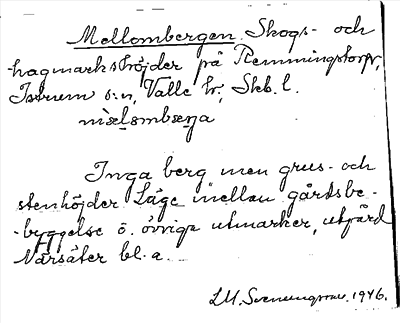 Mellombergen. Skogs- och
hagmarkshöjder på Remmingstorp,
Istrum s:n, Valle hr, Skb. l.
Inga berg men grus- och
stenhöjder. Läge mellan gårdsbe-
byggelse ö. övriga utmarker, utgård
Vårsäter bl. a.
LM. Svenungsson. 1946.